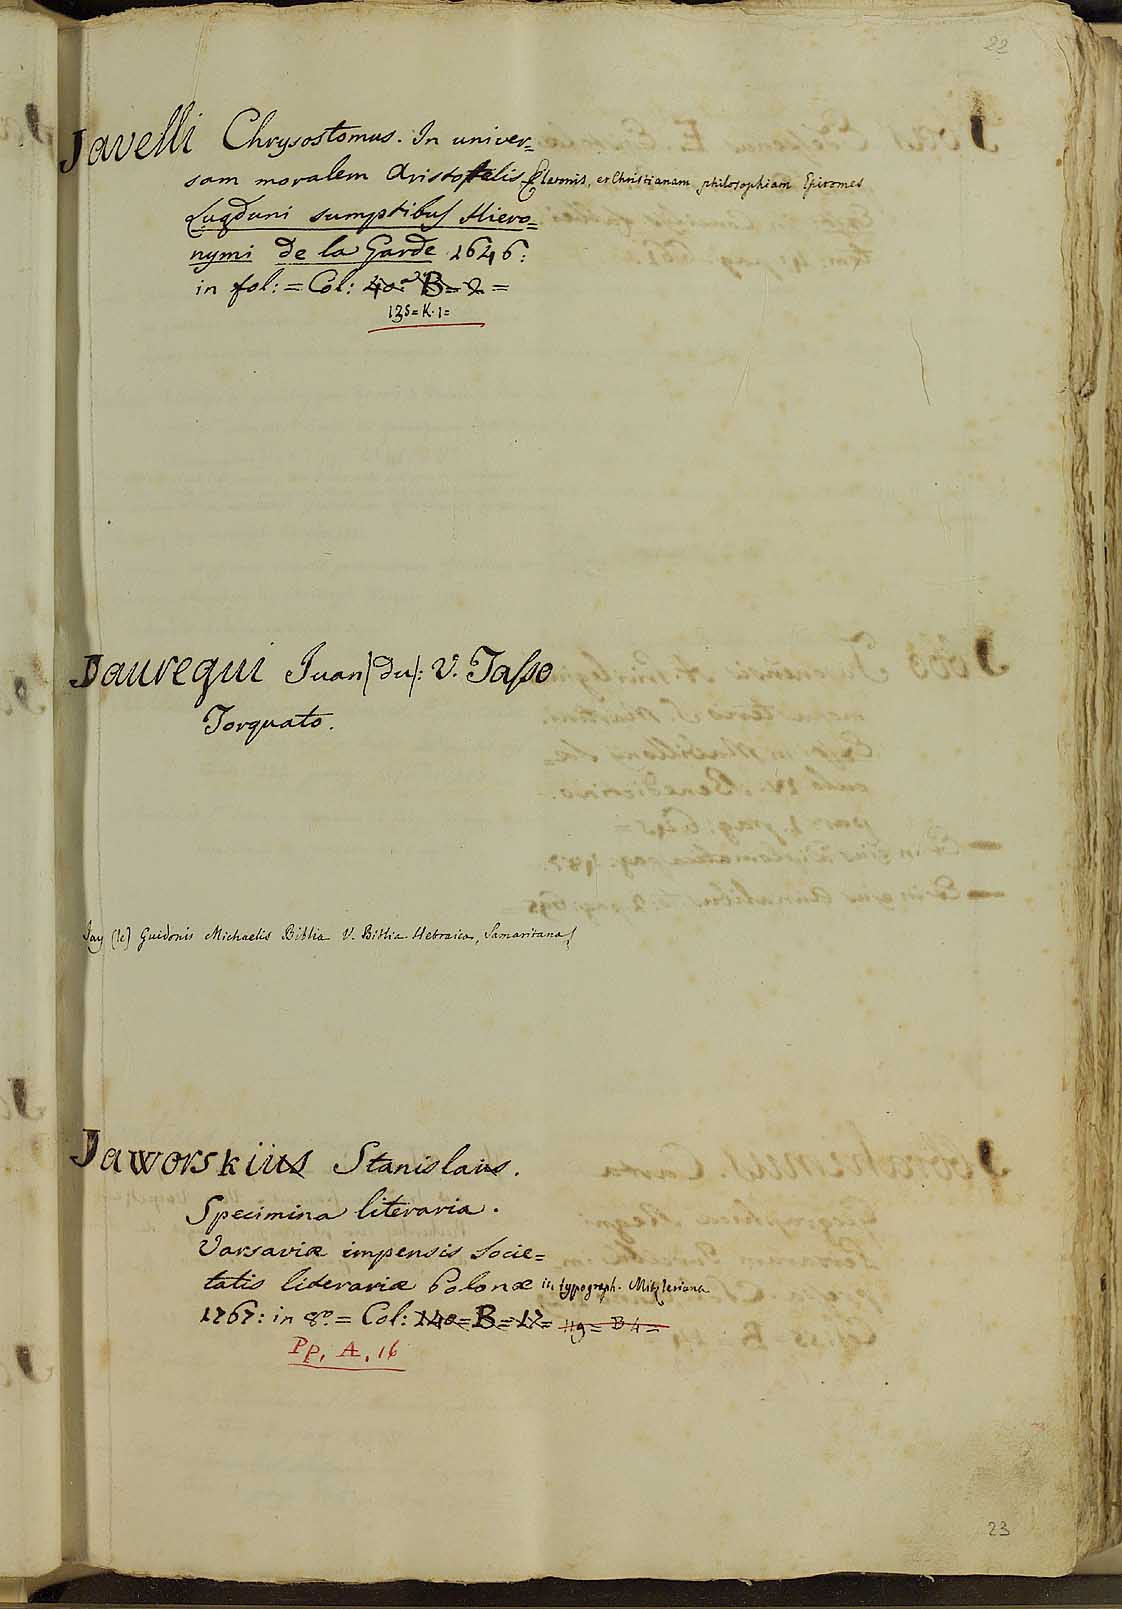 22
Javelli Chrysostomus. In univer=
sam moralem Aristotelis, Platonis, et Christianam philosophiam Epitomes
Lugduni sumptibus Hiero=
nymi de la Garde 1646:
in fol: = Col: 40= B= 2=
135= K. 1=
Jauregui Juan /du/: V. Tasso
Torquato.
Jay (le) Guidonis Michaelis Biblia V. Biblia Hebraica, Samaritana
Jaworskius Stanislaus.
Specimina literaria.
Varsaviæ impensis Socie=
tatis literariæ Polonæ in typograph. Mitzleriana
1767: in 8º. = Col: 140= B= 17= 119= B 4=
Pp. A. 16
23